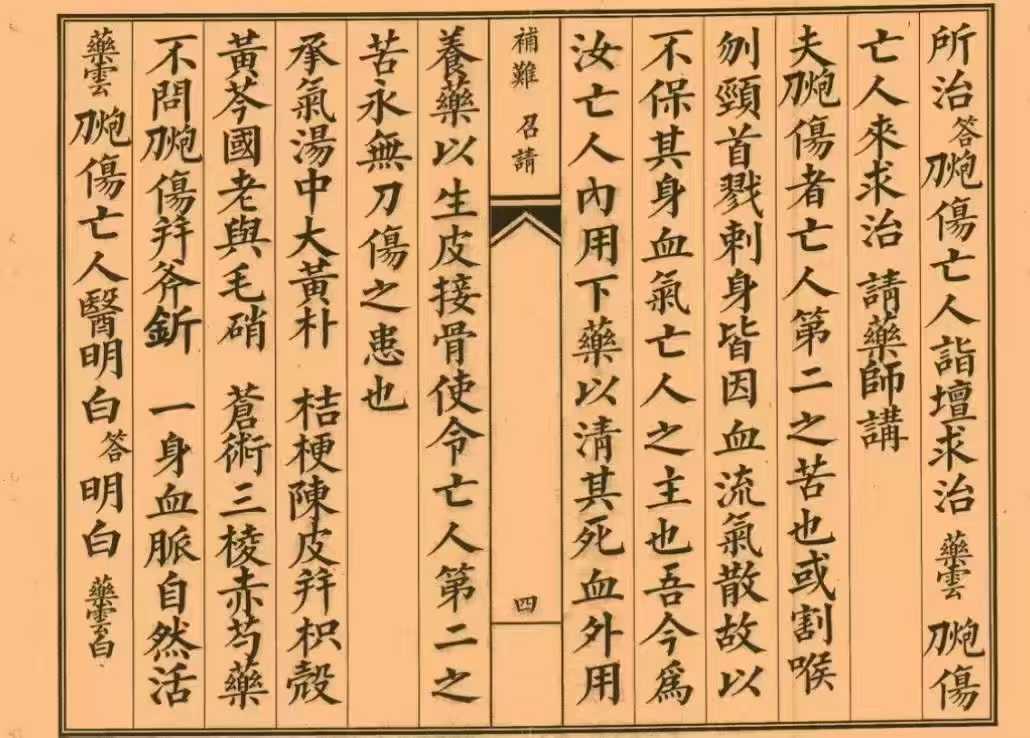 所治 答 刀炮傷亡人詣壇求治 藥雲 刀炮傷
亡人來求治 請藥師講
夫刀炮傷者亡人第二之苦也或割喉
刎頸首戮刺身皆因血流氣散故以
不保其身血氣亡人之主也吾今爲
汝亡人內用下藥以清其死血外用
補難 召請 四
養藥以生皮接骨使令亡人第二之
苦永無刀傷之患也
承氣湯中大黃朴 桔梗陳皮并枳殼
黃芩國老與毛硝 蒼術三棱赤芍藥
不問刀炮傷并斧釿 一身血脈自然活
藥雲 刀炮傷亡人醫明白 答 明白 藥雲白